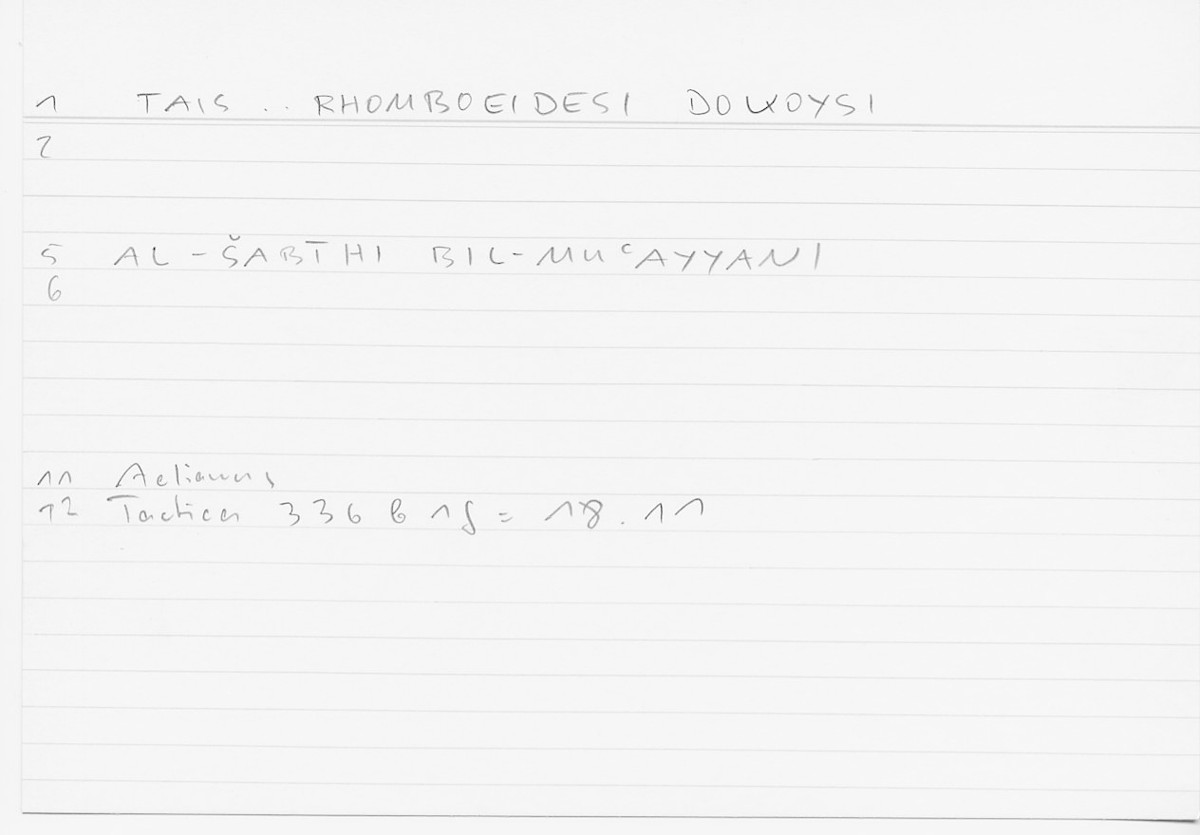 1 TAIS .. RHOMBOEIDESI DOKOYSI
2
5 AL-ŠABĪHI BIL-MUʿAYYANI
6
11 Aelianus
12 Tactica 336 b 1f = 18.11